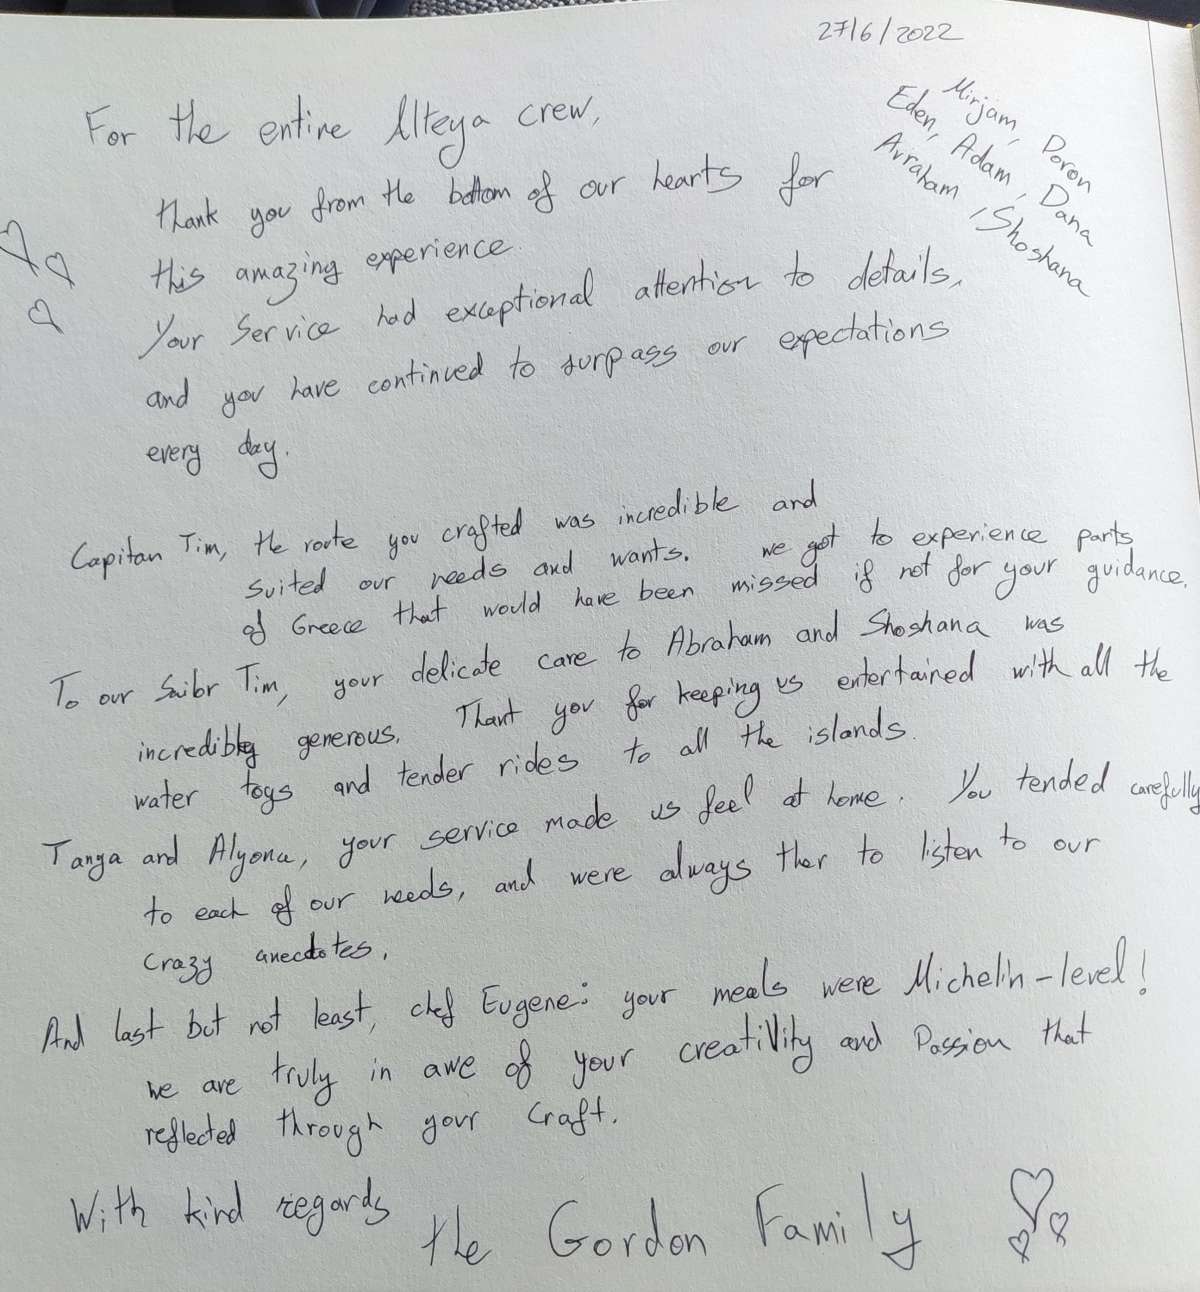 27/6/2022
Mirjam, Doron
Eden, Adam, Dana
Avraham, Shoshana
For the entire Alteya crew,
thank you from the bottom of our hearts for
this amazing experience.
Your Service had exceptional attention to details,
and you have continued to surpass our expectations
every day.
Capitan Tim, the route you crafted was incredible and
suited our needs and wants. we got to experience parts
of Greece that would have been missed if not for your guidance.
To our Sailor Tim, your delicate care to Abraham and Shoshana was
incredibly generous. Thank you for keeping us entertained with all the
water toys and tender rides to all the islands.
Tanya and Alyona, your service made us feel at home. You tended carefully
to each of our needs, and were always ther to listen to our
crazy anecdotes.
And last but not least, chef Eugene: your meals were Michelin-level!
we are truly in awe of your creativity and Passion that
reflected through your craft.
With kind regards
the Gordon Family